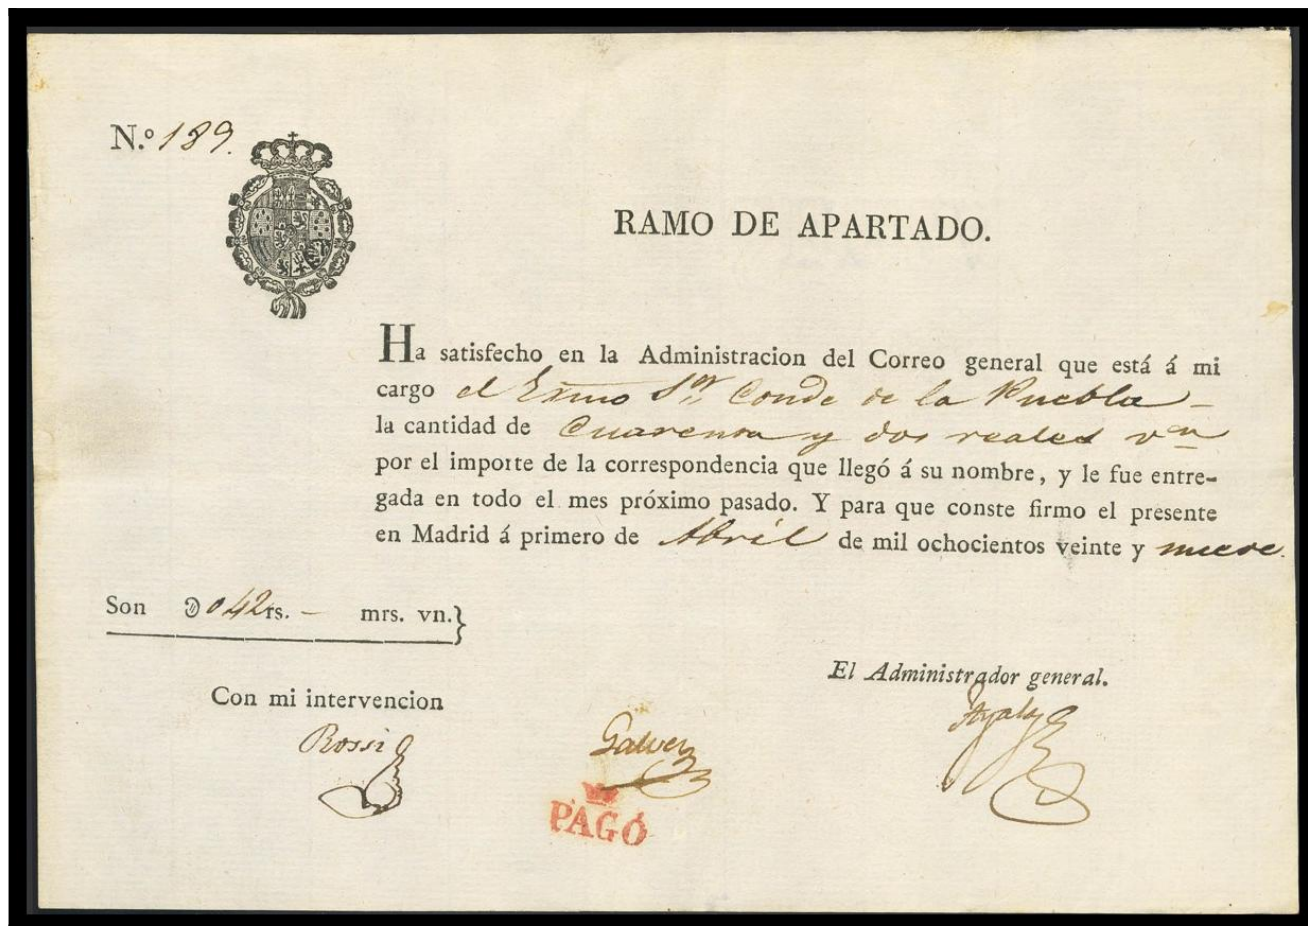 N.º 189.
RAMO DE APARTADO.
Ha satisfecho en la Administracion del Correo general que está á mi
cargo el Exmo Sor Conde de la Puebla -
la cantidad de Cuarenta y dos reales von
por el importe de la correspondencia que llegó á su nombre, y le fue entre-
gada en todo el mes próximo pasado. Y para que conste firmo el presente
en Madrid á primero de Abril de mil ochocientos veinte y nueve.
Son 042 rs. - mrs. vn.}
El Administrador general.
Con mi intervencion
Ayala
Rossi
Galvez
PAGÓ